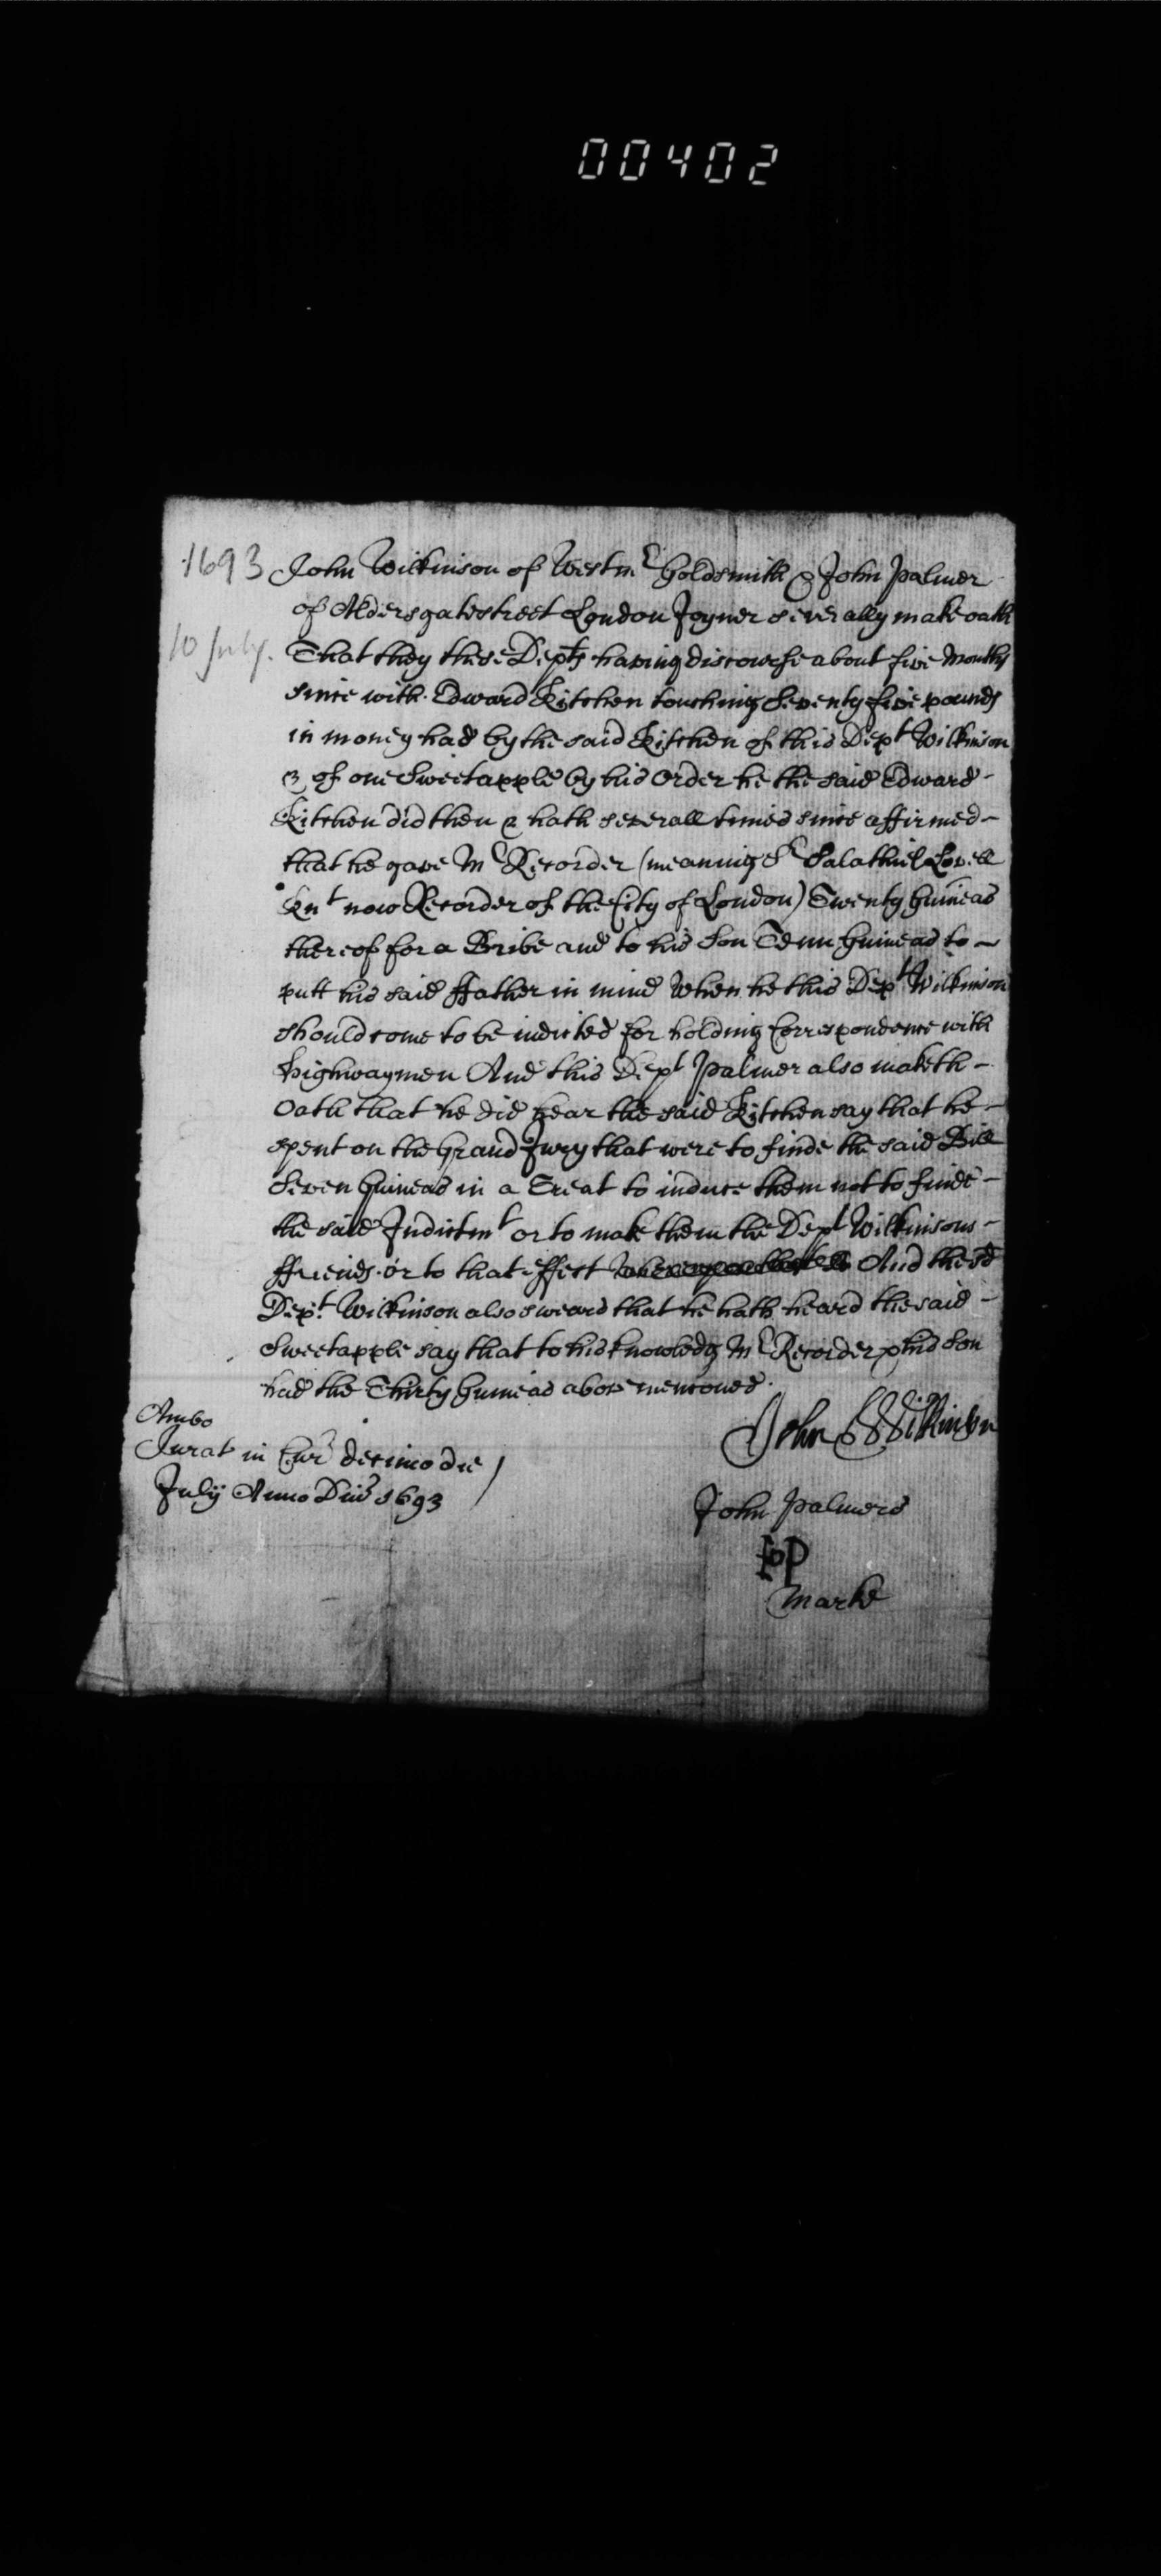 00402
1693 John Wilkinson of Westmr Goldsmith & John Palmer
of Aldersgatestreet London Joyner severally make oath
10 July. That they these Depts having discourse about five Months
since with Edward Kitchen touching Seventy five pounds
in money had by the said Kitchen of this Dept Wilkinson
& of one Sweetapple by his Order he the said Edward -
Kitchen did then & hath severall times since affirmed -
that he gave Mr Recorder (meaning Sr Salathiel Lovell
Knt now Recorder of the City of London) Twenty Guineas
thereof for a Bribe and to his Son Tenn Guineas to -
putt his said ffather in mind when he this Dept Wilkinson
should come to be indicted for holding Correspondence with
Highwaymen And this Dept Palmer also maketh -
Oath that he did hear the said Kitchen say that he -
spent on the Grand Jury that were to finde the said Bill
Seven Guineas in a Treat to induce them not to finde -
the said Indictmt or to make them the Dept Wilkinsons -
ffriends or to that effect And the sd
Dept Wilkinson also sweares that he hath heard the said -
Sweetapple say that to his knowledg Mr Recorder & his Son
had the Thirty Guineas above menconed.
Ambo
Jurat in Cur decimo die
July Anno Dni 1693
John Wilkinson
John Palmers
IP
Marke